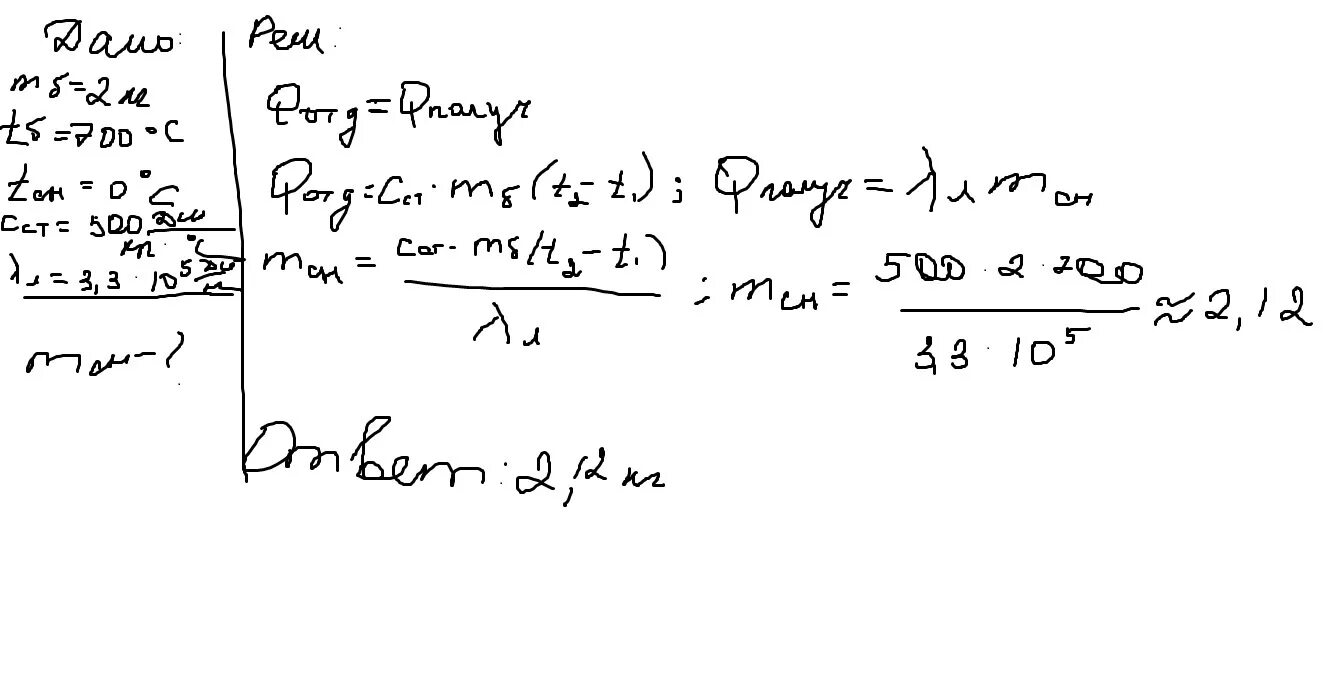 Дано:
mб = 2 кг
tб = 700 °C
tсн = 0 °C
Cст = 500 Дж / кг · °C
λл = 3,3 · 10⁵ Дж / кг
mсн - ?
Реш:
Qотд = Qполуч
Qотд = Cст · mб (t₂ - t₁) ; Qполуч = λл mсн
mсн = Cст · mб (t₂ - t₁) / λл ; mсн = 500 · 2 · 700 / 3,3 · 10⁵ ≈ 2,12
Ответ: 2,12 кг